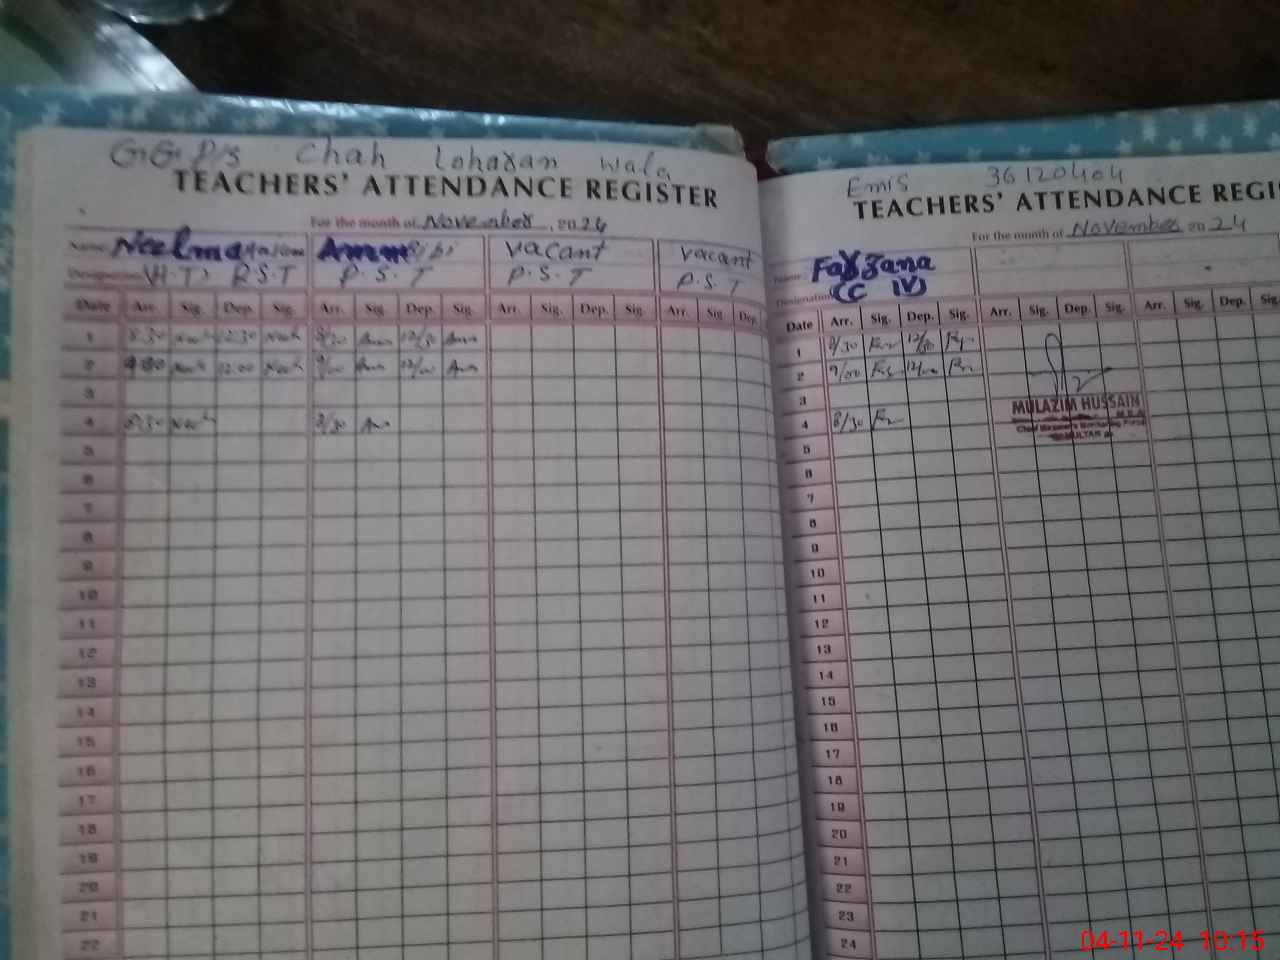 G.G. P/S Chah Loharan Wala
TEACHERS' ATTENDANCE REGISTER
For the month of November, 2024
Name Neelma Amm Bibi Vacant Vacant
Designation (H.T) P.S.T P.S.T P.S.T
Date Arr. Sig. Dep. Sig. Arr. Sig. Dep. Sig. Arr. Sig. Dep. Sig. Arr. Sig Dep.
1 8.30 12.30 8/30 12/30
2 9.00 12.00 9/00 12/00
3
4 8.30 8/30
5
6
7
8
9
10
11
12
13
14
15
16
17
18
19
20
21
22
Emis 36120404
TEACHERS' ATTENDANCE REGIS
For the month of November 2024
Name Farzana
Designation (C IV)
Date Arr. Sig. Dep. Sig. Arr. Sig. Dep. Sig. Arr. Sig. Dep. Sig.
1 8/30 12/30
2 9/00 12/00
3
MULAZIM HUSSAIN
4 8/30
MULTAN
5
6
7
8
9
10
11
12
13
14
15
16
17
18
19
20
21
22
23
24
04-11-24 10:15